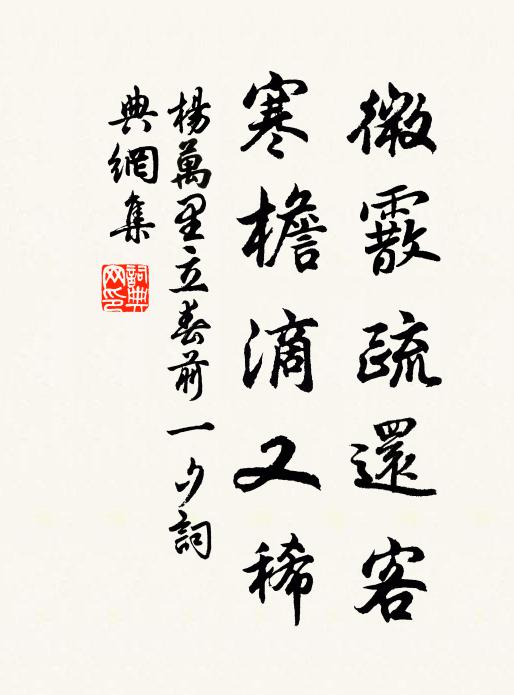 微霰疏還密
寒檐滴又稀
楊萬里立春前一夕詞
典網集
詞典网印